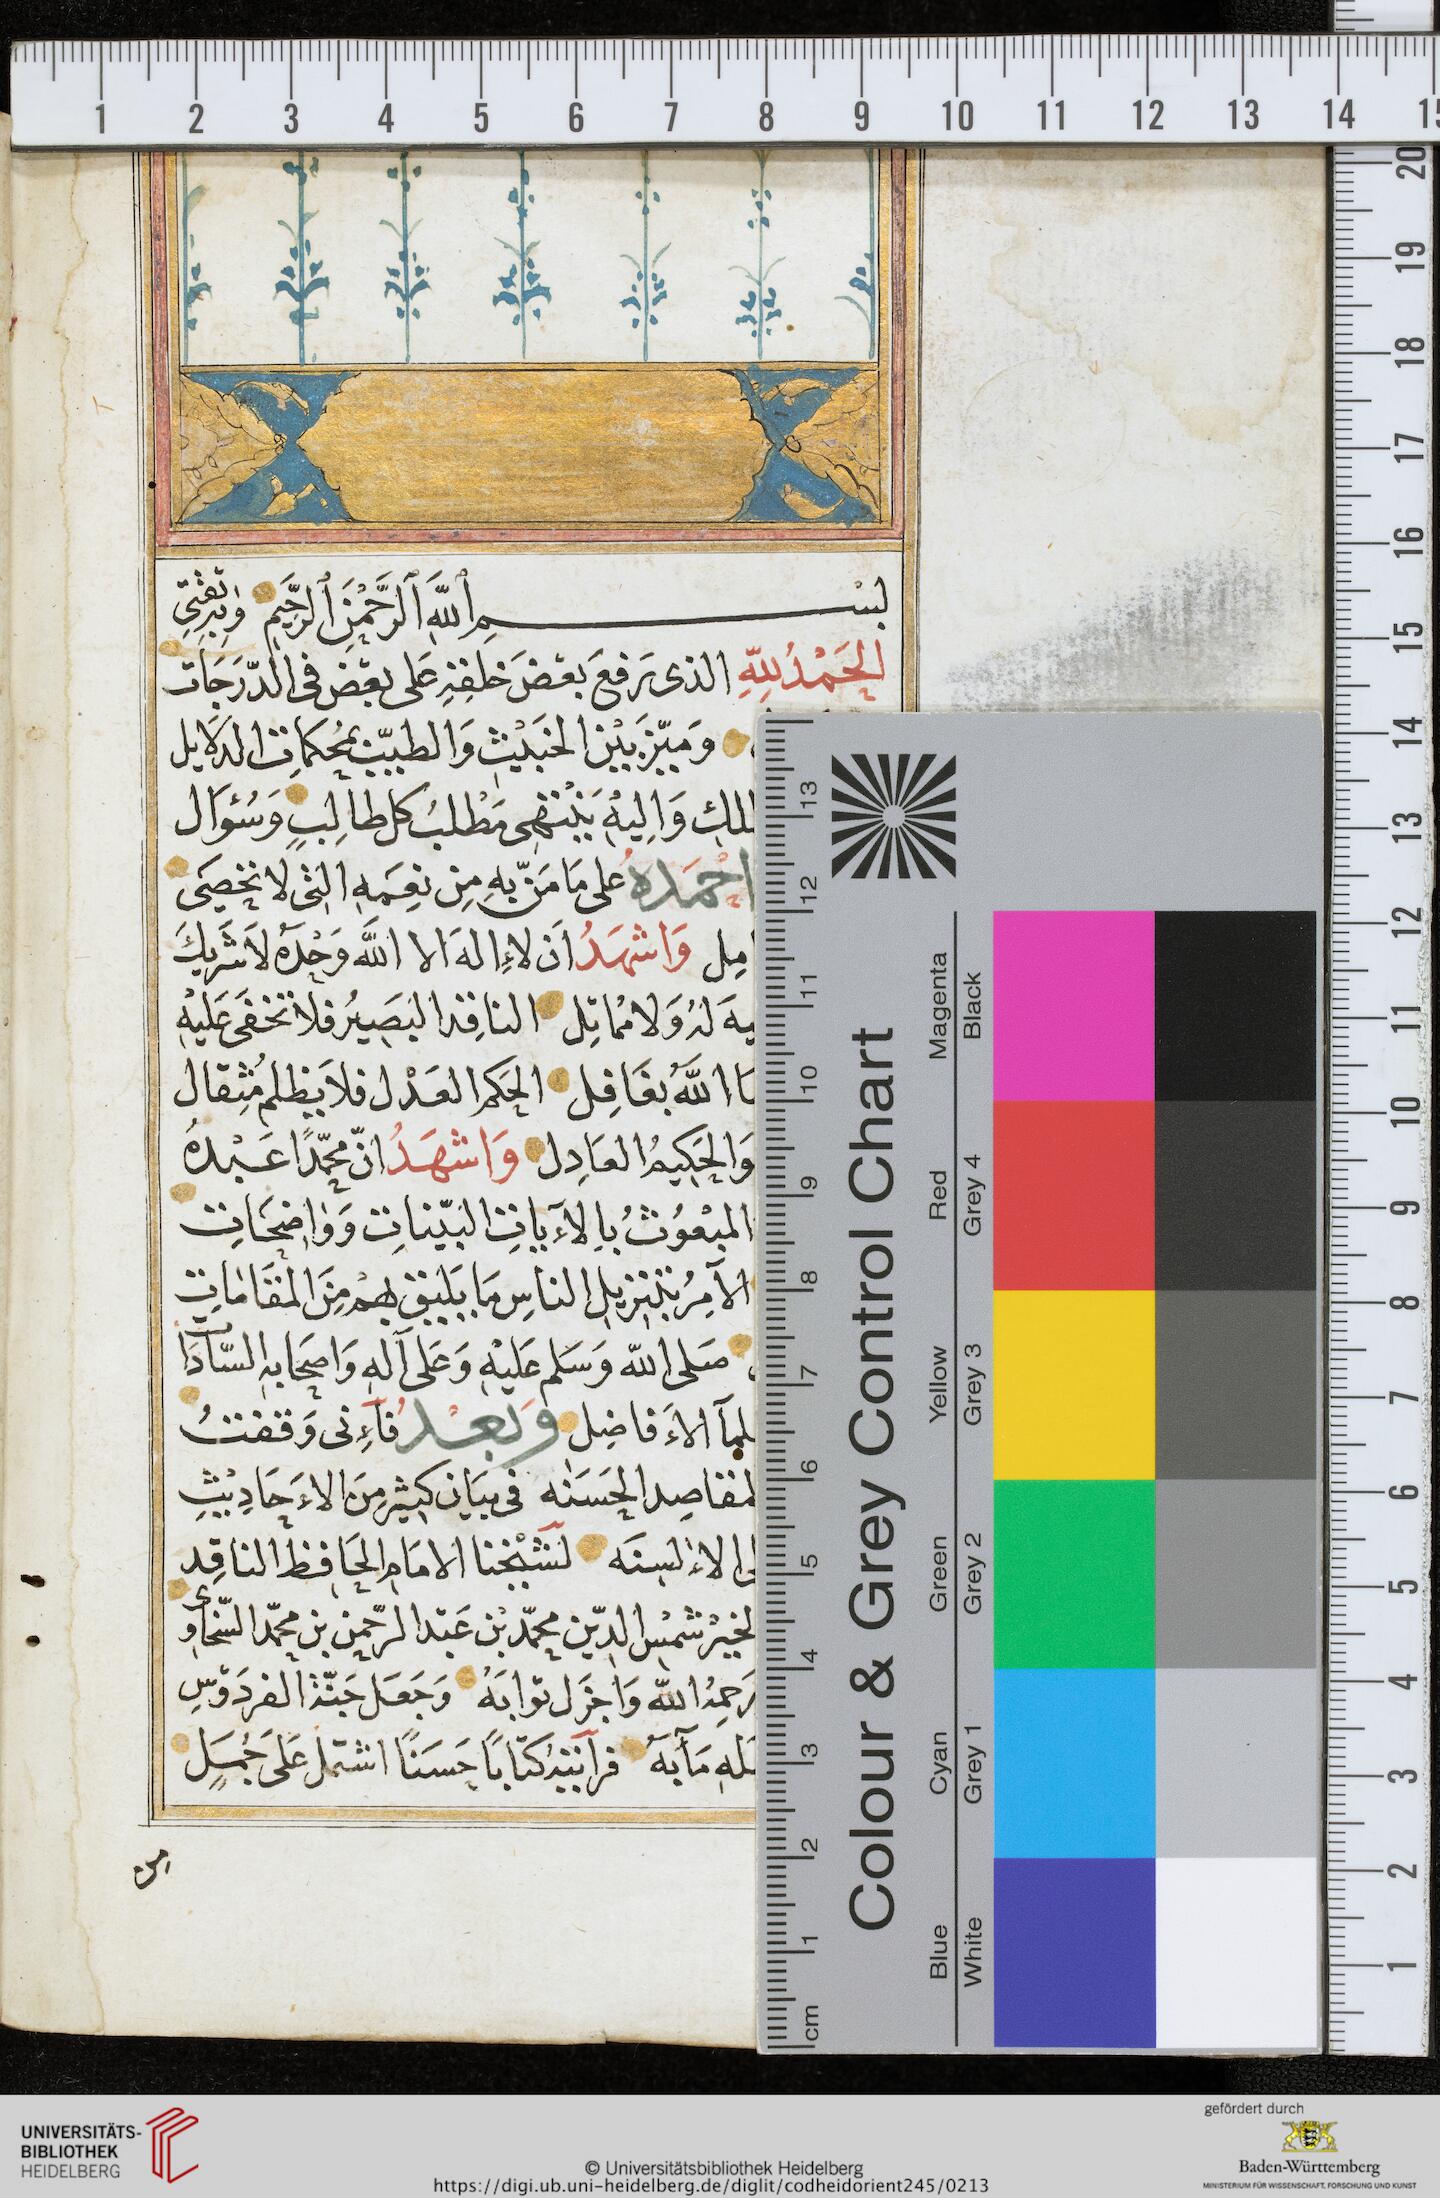 1 2 3 4 5 6 7 8 9 10 11 12 13 14 15
بِسْمِ ٱللَّهِ ٱلرَّحْمَٰنِ ٱلرَّحِيمِ وبه ثقتي
الحَمْدُ لِلَّهِ الذى رَفعَ بعْضَ خلقِهِ عَلى بعْض فى الدّرَجَات
وَميّز بَيْن الخبَيْثِ وَالطيبّ بمُحكمَات الدلايل
وَاِليْهِ يَنْتهى مَطْلبُ كل طالِبٍ وَسُؤَال
احْمَده عَلى مَا مَنّ بِهِ مِن نِعَمِهِ التى لا تحْصىَ
وَاشهَدُ اَن لا اِله الا اللَّه وَحْدَهُ لاَ شَريكَ
لهُ وَلا مُماثِل الناقِد البَصِيرُ فلا تخفَى عَليْهِ
اللَّهُ بغَافِل الحَكم العَدْل فلا يَظلم مُثِقال
وَالحَكِيمُ العَادِل وَاشهَدُ انّ محمّدًا عَبْدهُ
المبْعُوثُ بالآيات البَيّنات وَوَاضِحَات
الآمِرُ بتنزيل الناسِ مَا يَليق بهمْ مِنَ المقَامَات
صَلى اللّه وَسَلم عَليْهِ وَعَلى آلهِ وَاصحَابهِ السَّادَا
الاَفاضِل وَبَعْد فَاِنى وَقفتُ
المقاصِد الحَسَنه فى بيَان كثير مِن الاَحَادِيْثِ
الالسِنَه لشَيْخنا الامَام الحَافِظ الناقِد
شمْس الدّين محمّد بْن عَبْد الرّحمن بن محمّد السّخاوى
رَحِمهُ اللّه وَاجزَل ثوابَهُ وَجَعَل جَنّة الفردَوْسِ
مَآبَهُ فرأيتهُ كتابًا حَسَنًا اشتمل عَلى جُمَلٍ
من
20
19
18
17
16
15
14
13
12
11
10
9
8
7
6
5
4
3
2
1
Colour & Grey Control Chart
Magenta Black
Red Grey 4
Yellow Grey 3
Green Grey 2
Cyan Grey 1
Blue White
13
12
11
10
9
8
7
6
5
4
3
2
1
cm
UNIVERSITÄTS-
BIBLIOTHEK
HEIDELBERG
© Universitätsbibliothek Heidelberg
https://digi.ub.uni-heidelberg.de/diglit/codheidorient245/0213
gefördert durch
Baden-Württemberg
MINISTERIUM FÜR WISSENSCHAFT, FORSCHUNG UND KUNST